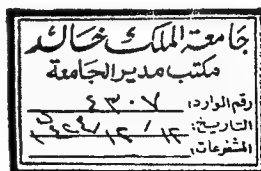 جامعة الملك خالد
مكتب مدير الجامعة
رقم الوارد: ٤٣٠٧
التاريخ: ١٢ / ١٢ /
المشفوعات: